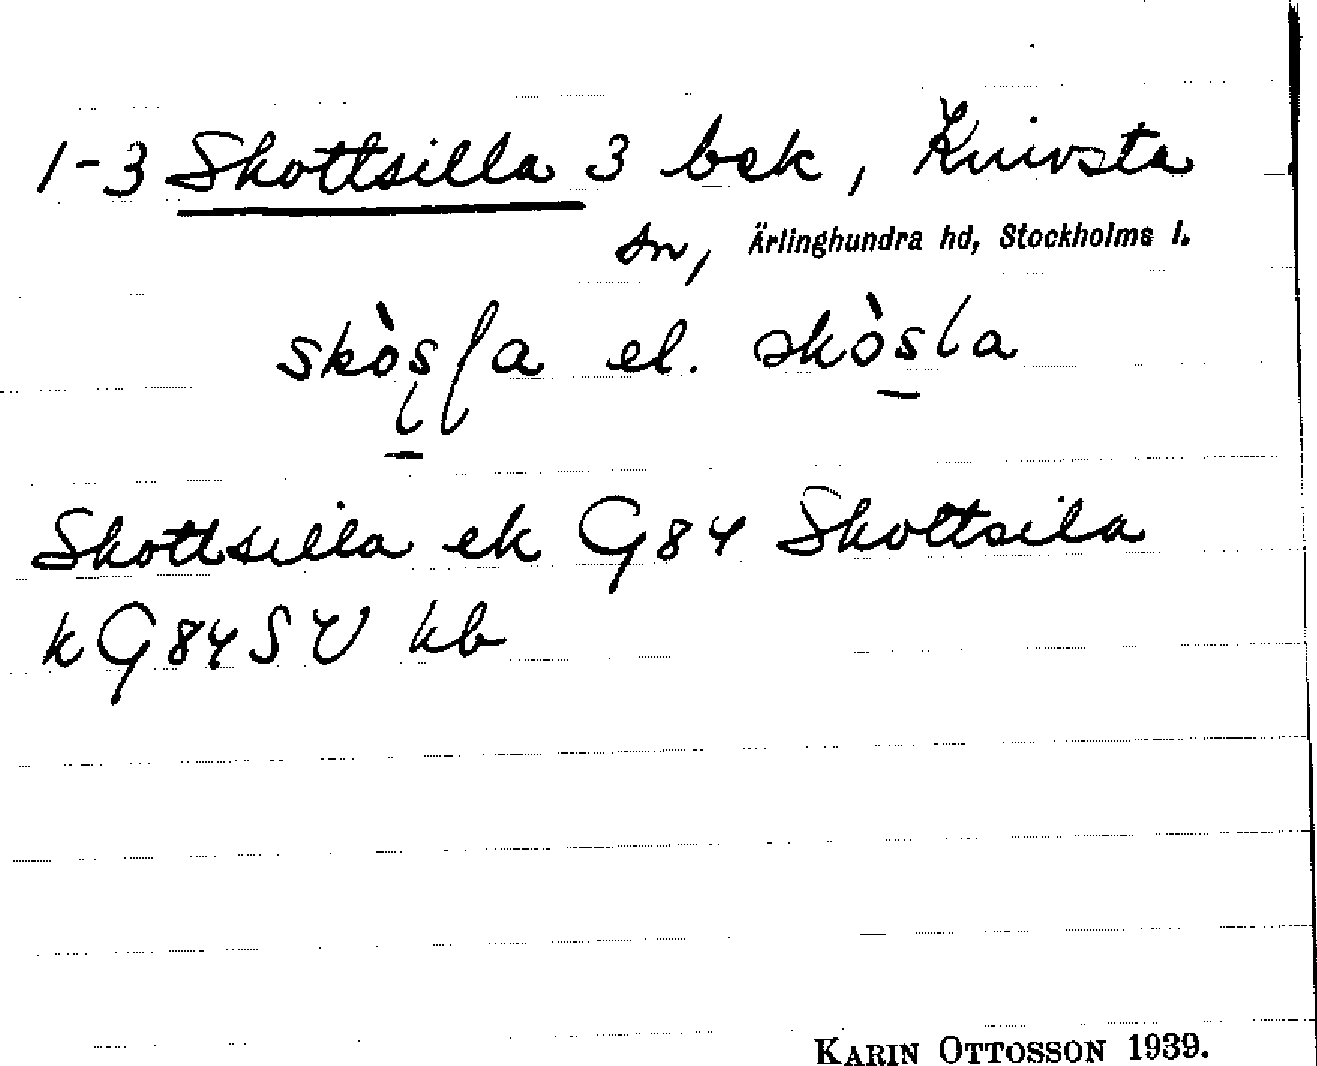 1-3 Skottsilla 3 bsk, Knivsta
sn, Ärlinghundra hd, Stockholms l.
skòsla el. skòsla
Skottsilla ek G84 Skottsila
k G84 SV kb
KARIN OTTOSSON 1939.